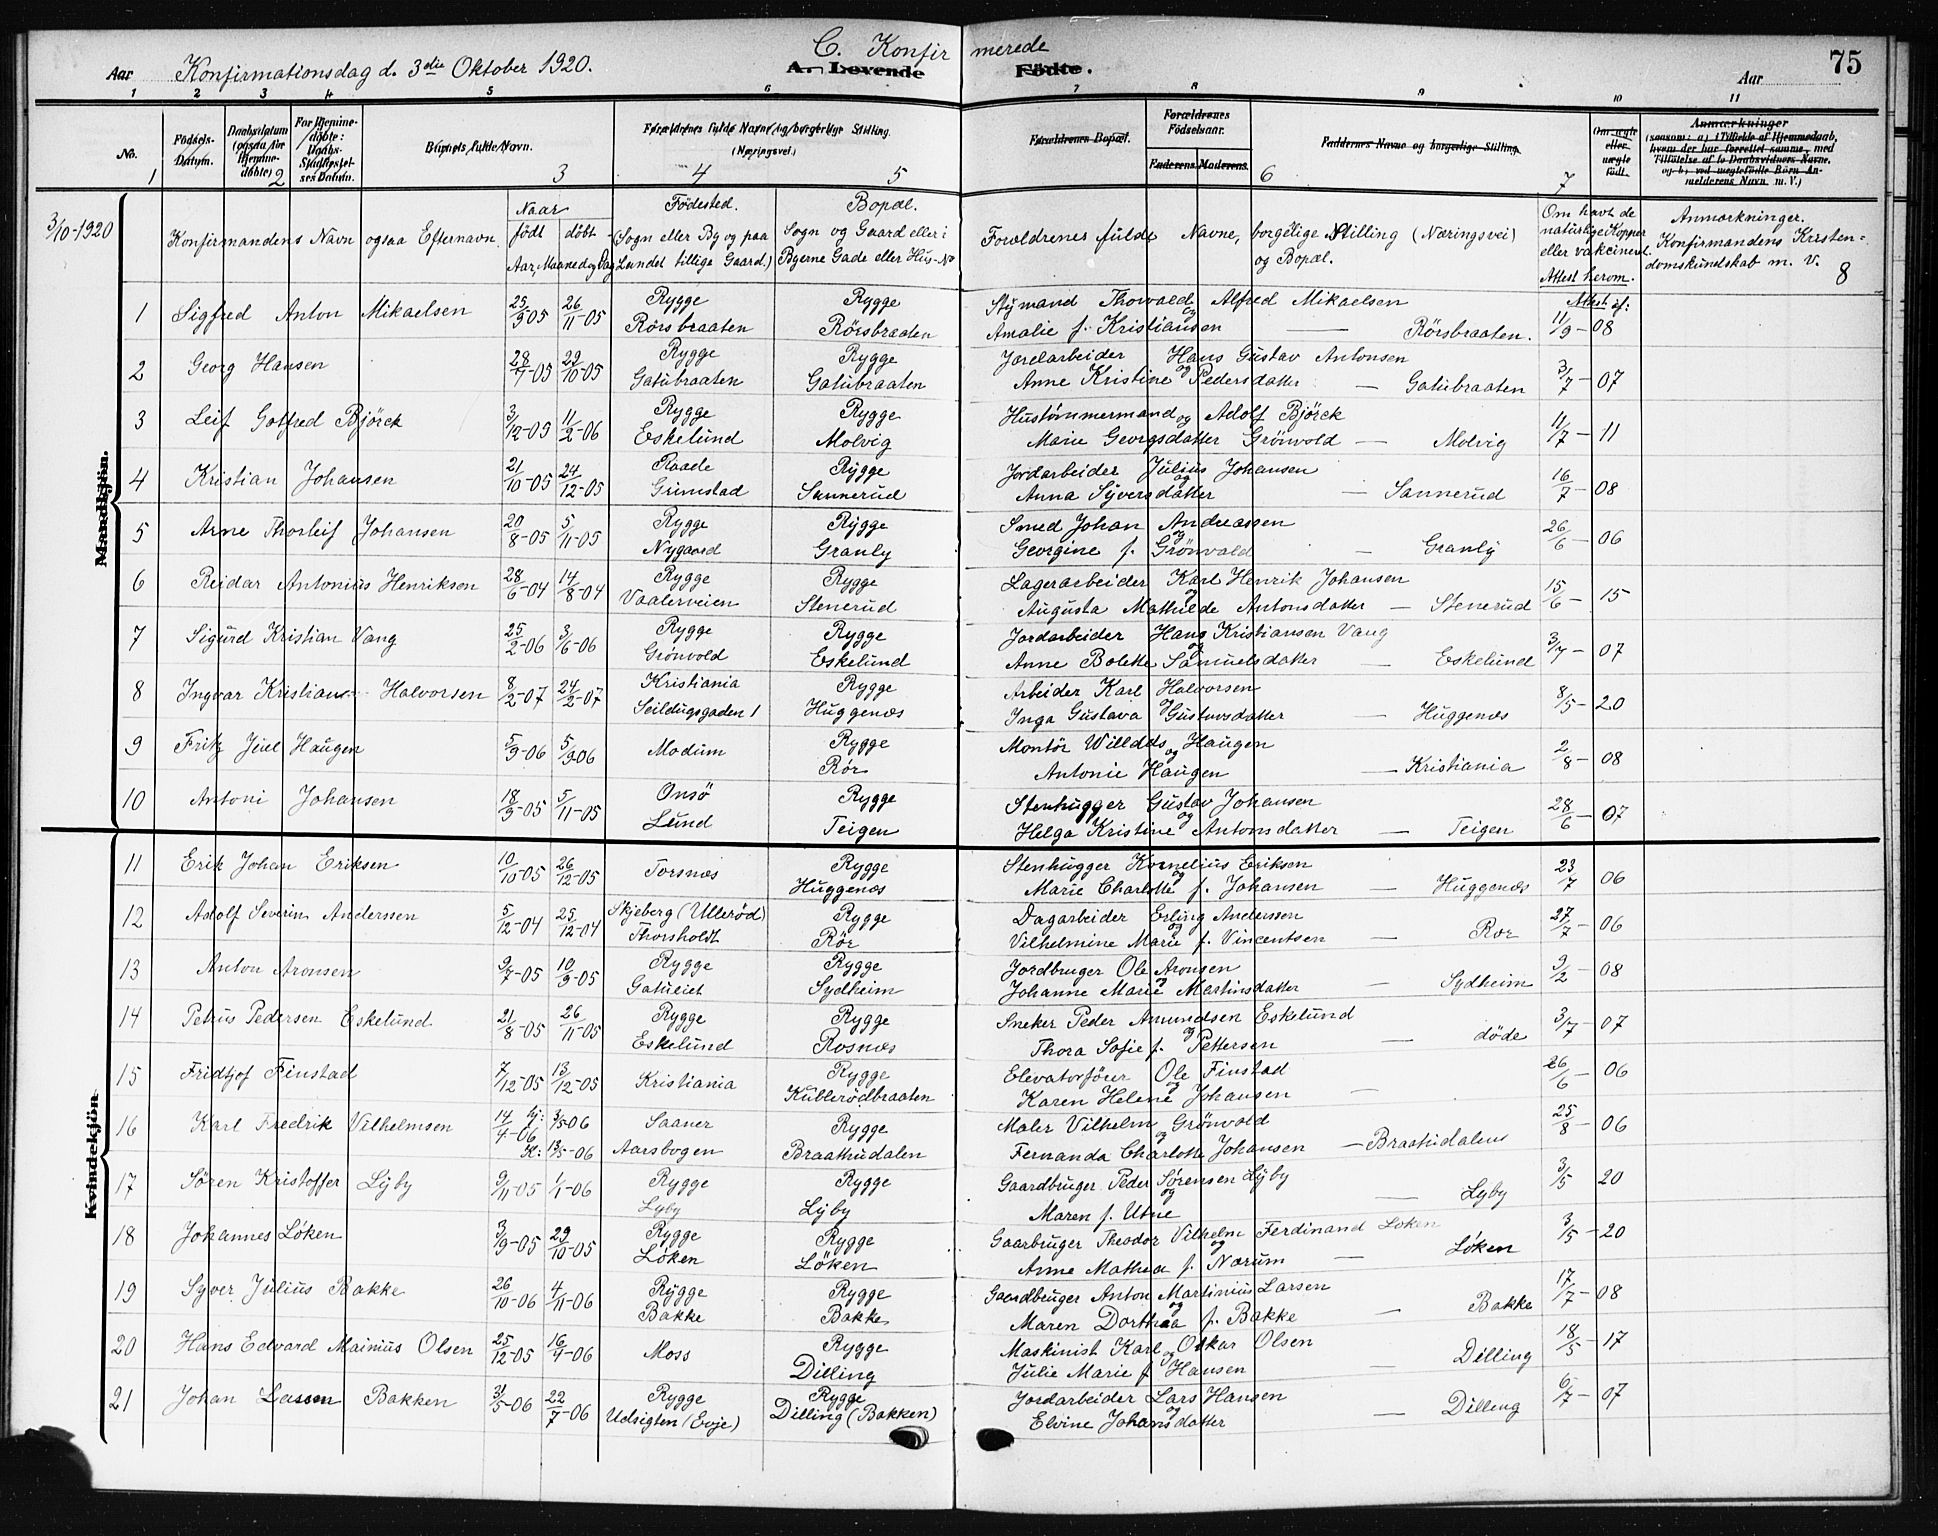 C. Konfirmerede
75
Aar Konfirmationsdag d. 3die Oktober 1920. A. Levende Födte. Aar
1 2 3 4 5 6 7 8 9 10 11
No. Födsels-Datum. Daabsdatum (ogsaa for Hjemmedöbte) For Hjemmedöbte: Daabs-Stadfæstelses Datum. Barnets fulde Navn. Forældrenes fulde Navne og borgerlige Stilling. (Næringsvei.) Forældrenes Bopæl. Forældrenes Födselsaar. Faderens. Moderens. Faddernes Navne og borgerlige Stilling. Om ægte eller uægte födt. Anmærkninger (saasom: a) i Tilfælde af Hjemmedaab, hvem der har forrettet samme, med Tilföielse af to Daabsvidners Navne, og b) ved uægtefödte Börn Anmelderens Navn m. V.)
1 2 3 4 5 6 7
3/10-1920 Konfirmandens Navn ogsaa Efternavn. Naar födt döbt Aar, Maaned og Dag Födested. (Sogn eller By og paa Landet tillige Gaard.) Bopæl. Sogn og Gaard eller i Byerne Gade eller Hus-No Foreldrenes fulde Navne, borgelige Stilling (Næringsvei) og Bopæl. Om havt de naturlige Kopper eller vakcineret. Attest herom. Anmærkninger. Konfirmandens Kristendomskundskab m. V. 8
Attest af:
Mandkjön.
1 Sigfred Anton Mikaelsen 25/9-05 26/11-05 Rygge Rörsbraaten Rygge Rörsbraaten Stymand Thorvald Alfred Mikaelsen og Amalie f. Kristiansen — Rörsbraaten. 11/9-08
2 Georg Hansen 28/7-05 29/10-05 Rygge Gatubraaten Rygge Gatubraaten Jordarbeider Hans Gustav Antonsen og Anne Kristine Pedersdatter — Gatubraaten 3/7-07
3 Leif Gotfred Björck 3/12-05 11/2-06 Rygge Eskelund Rygge Molvig Hustömmermand og Adolf Björck Marie Georgsdatter Grönvold — Molvig 11/7-11
4 Kristian Johansen 21/10-05 24/12-05 Raade Grimstad Rygge Sannerud Jordarbeider Julius Johansen og Anna Syversdatter — Sannerud 16/7-08
5 Arne Thorleif Johansen 20/8-05 5/11-05 Rygge Nygaard Rygge Granly Smed Johan Andreassen og Georgine f. Grönvald — Granly 26/6-06
6 Reidar Antonius Henriksen 28/6-04 14/8-04 Rygge Vaalerveien Rygge Stenerud Lagerarbeider Karl Henrik Johansen og Augusta Mathilde Antonsdatter — Stenerud 15/6-15
7 Sigurd Kristian Vang 25/2-06 3/6-06 Rygge Grönvold Rygge Eskelund Jordarbeider Hans Kristiansen Vang og Anne Bolette Samuelsdatter — Eskelund 3/7-07
8 Ingvar Kristian Halvorsen 8/2-07 24/2-07 Kristiania Seildugsgaden 1 Rygge Huggenæs Arbeider Karl Halvorsen og Inga Gustava Gustavsdatter — Huggenæs 8/5-20
9 Fritz Juel Haugen 5/9-06 5/9 06 Modum Rygge Rör Montör Willdds og Haugen Antonie Haugen — Kristiania 2/8-08
10 Antoni Johansen 18/9-05 5/11-05 Onsö Lund Rygge Teigen Stenhugger Gustav Johansen og Helga Kristine Antonsdatter — Teigen 28/6-07
Kvindekjön
11 Erik Johan Eriksen 10/10-05 26/12-05 Torsnæs Rygge Huggenæs Stenhugger Kornelius Eriksen og Marie Charlotte f. Johansen — Huggenæs 23/7 06
12 Adolf Severin Anderssen 5/12-04 25/12-04 Skjeberg (Ullerød) Thorsholdt Rygge Rör Dagarbeider Erling Anderssen og Vilhelmine Marie f. Vincentsen — Rør 27/7-06
13 Anton Aronsen 9/7-05 10/9-05 Rygge Gatuleiet Rygge Sydheim Jordbruger Ole Aronsen og Johanne Marie Martinsdatter — Sydheim 9/2-08
14 Petrus Pedersen Eskelund 21/8-05 26/11-05 Rygge Eskelund Rygge Rosnæs Sneker Peder Amundsen Eskelund og Thora Sofie f. Pettersen — döde 3/7-07
15 Fridtjof Finstad 7/12-05 13/12-05 Kristiania Rygge Kublerödbraaten Elevatorförer Ole Finstad og Karen Helene Johansen — 26/6-06
16 Karl Fredrik Vilhelmsen 14/4-06 hj: 3/5-06 K: 13/5-06 Saaner Aarsbogen Rygge Braatudalen Maler Vilhelm Grönvold og Fernanda Charlotte Johansen — Braatudalens 25/8-06
17 Sören Kristoffer Lyby 9/11-05 1/1-06 Rygge Lyby Rygge Lyby Gaardbruger Peder Sørensen Lyby og Maren f. Utne — Lyby 3/5 20
18 Johannes Løken 3/9-05 29/10-05 Rygge Løken Rygge Løken Gaarbruger Theodor Vilhelm Ferdinand Løken og Anne Mathea f. Nærum — Løken 3/5-20
19 Syver Julius Bakke 26/10-06 4/11-06 Rygge Bakke Rygge Bakke Gaardbruger Anton Martinius Larsen og Maren Dorthea f. Bakke — Bakke 17/7-08
20 Hans Edvard Mainius Olsen 25/12-05 16/4-06 Moss Rygge Dilling Maskinist Karl Oskar Olsen og Julie Marie f Hansen — Dilling 18/5-17
21 Johan Larsen Bakken 31/5-06 22/7-06 Rygge Udsigten (Evje) Rygge Dilling (Bakken) Jordarbeider Lars Hansen og Elvine Johansdatter — Dilling 6/7-07